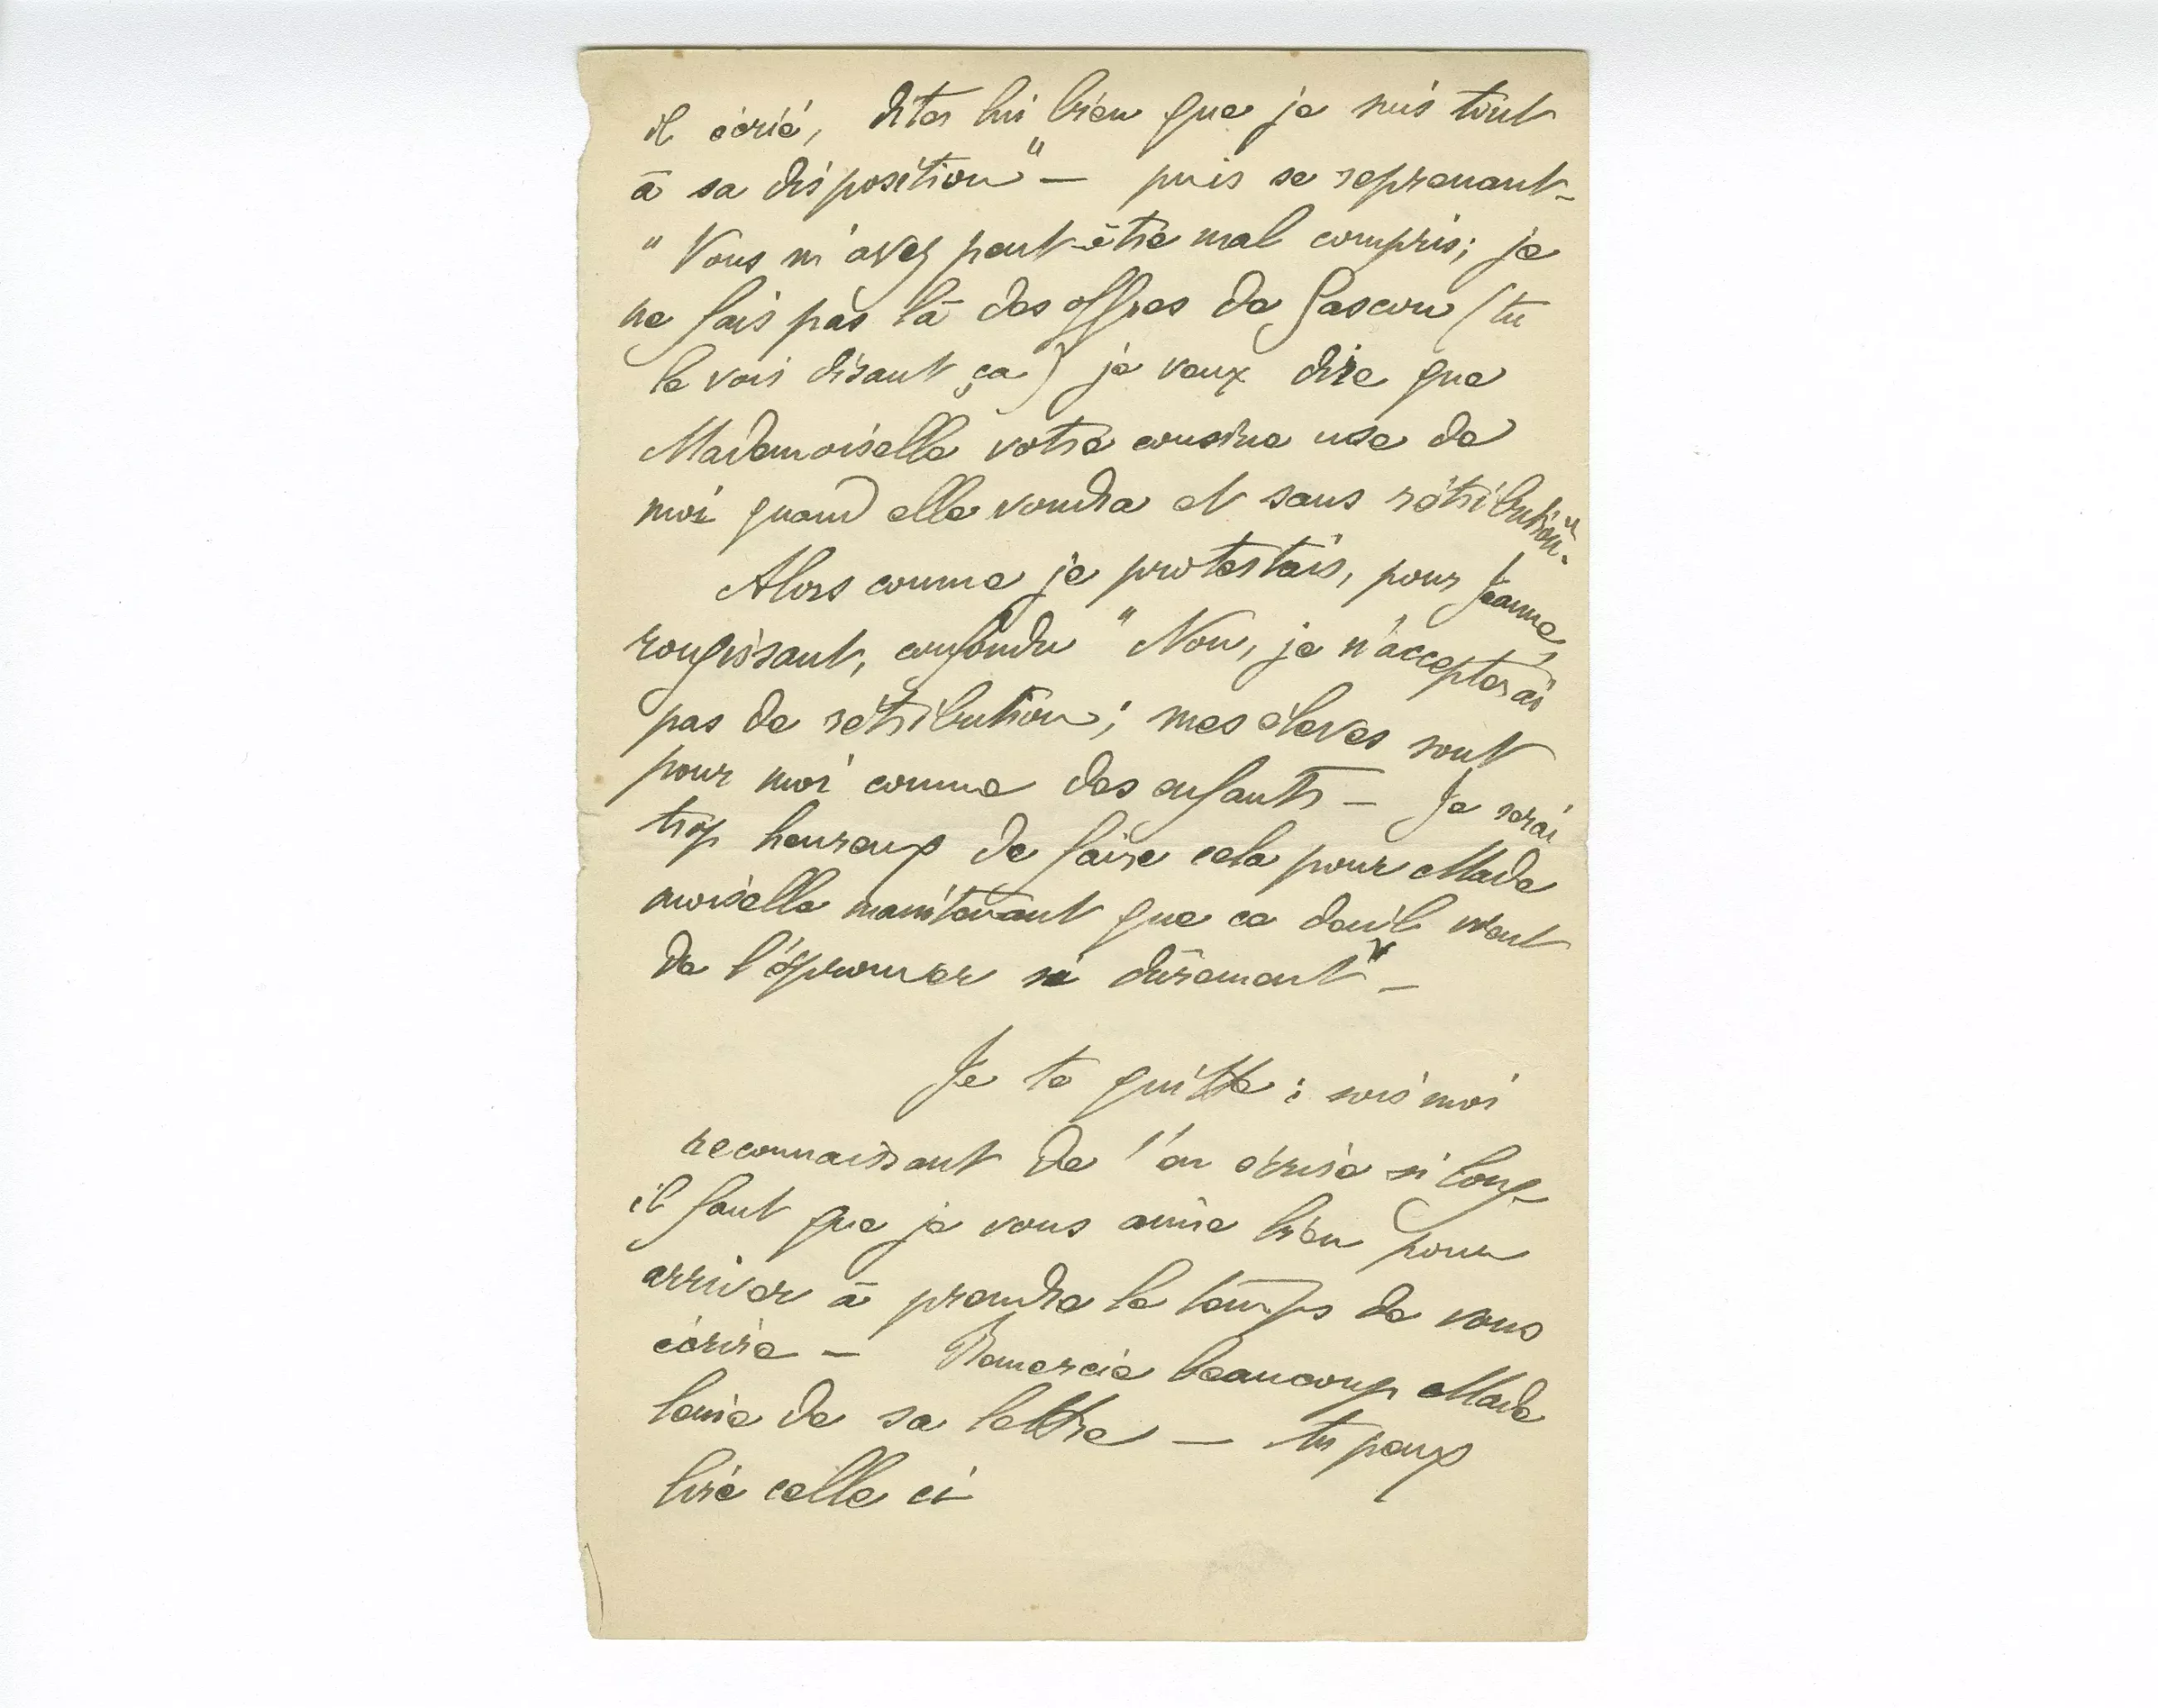 il écrié, dites lui bien que je suis tout
à sa disposition" — puis se reprenant -
" Vous m'avez peut-être mal compris; je
ne fais pas là des offres de Gascon (tu
le vois disant ça) je veux dire que
Mademoiselle votre cousine use de
moi quand elle voudra et sans rétribution".
Alors comme je protestais, pour Jeanne,
rougissant, confondu " Non, je n'accepterai
pas de rétribution; mes élèves sont
pour moi comme des enfants — Je serai
trop heureux de faire cela pour Made
moiselle maintenant que ce deuil vient
de l'éprouver si durement" —
Je te quitte : sois moi
reconnaissant de t'en écrire si long -
il faut que je vous aime bien pour
arriver à prendre le temps de vous
écrire — Remercie beaucoup Made
leine de sa lettre — tu peux
lire celle ci